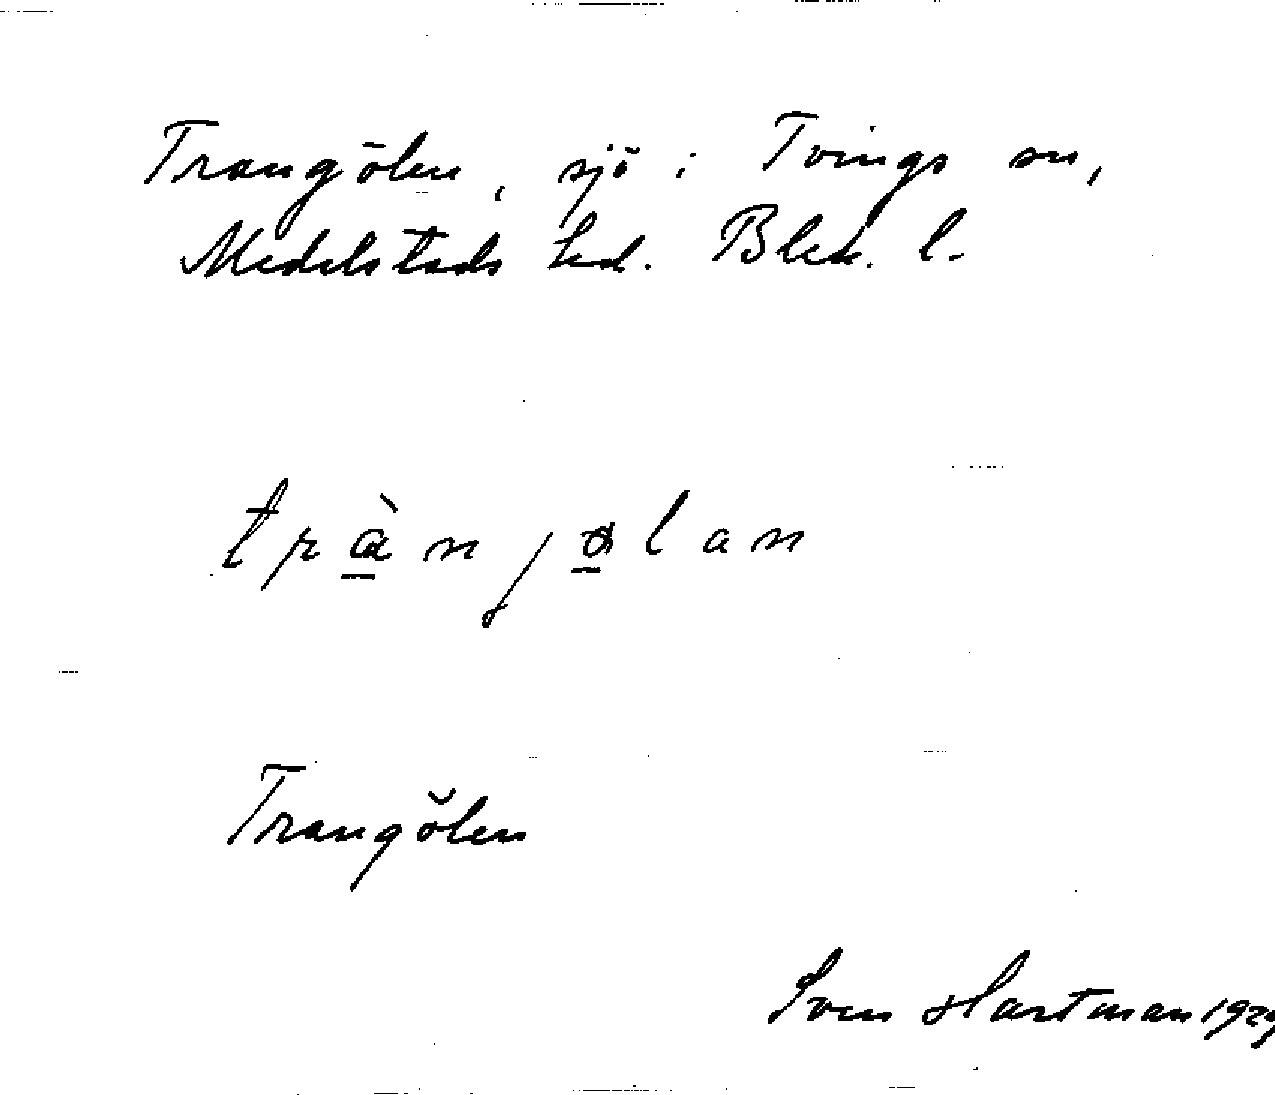 Trangölen, sjö i Tvings sn,
Medelstads hd. Blek. l.
trànjølan
Trangölen
Sven Hartman 1929